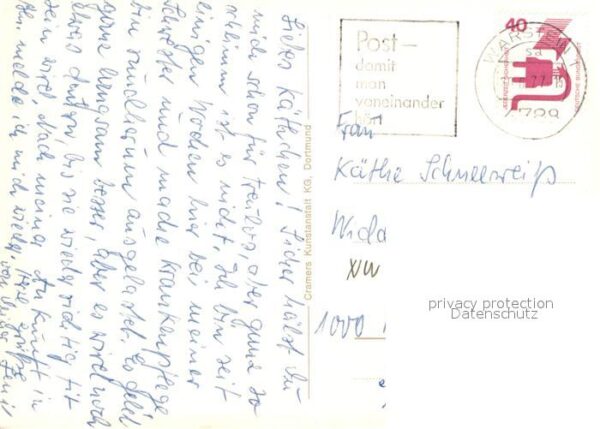 Liebes Käthchen! Sicher hälst Du
mich schon für treulos, aber ganz so
schlimm ist es nicht. Ich bin seit
einigen Wochen hier bei meiner
Schwester und mache Krankenpflege
bin rundherum ausgelastet. Es geht
ganz langsam besser, aber es wird noch
etwas dauern, bis sie wieder richtig fit
sein wird. Nach meiner Ankunft in
melde ich mich wieder.
Cramers Kunstanstalt KG, Dortmund
Post–
damit
man
voneinander
hört
WARSTEIN 1
40
DEUTSCHE BUNDESPOST
Frau
Käthe Schneeweiß
1000
privacy protection
Datenschutz